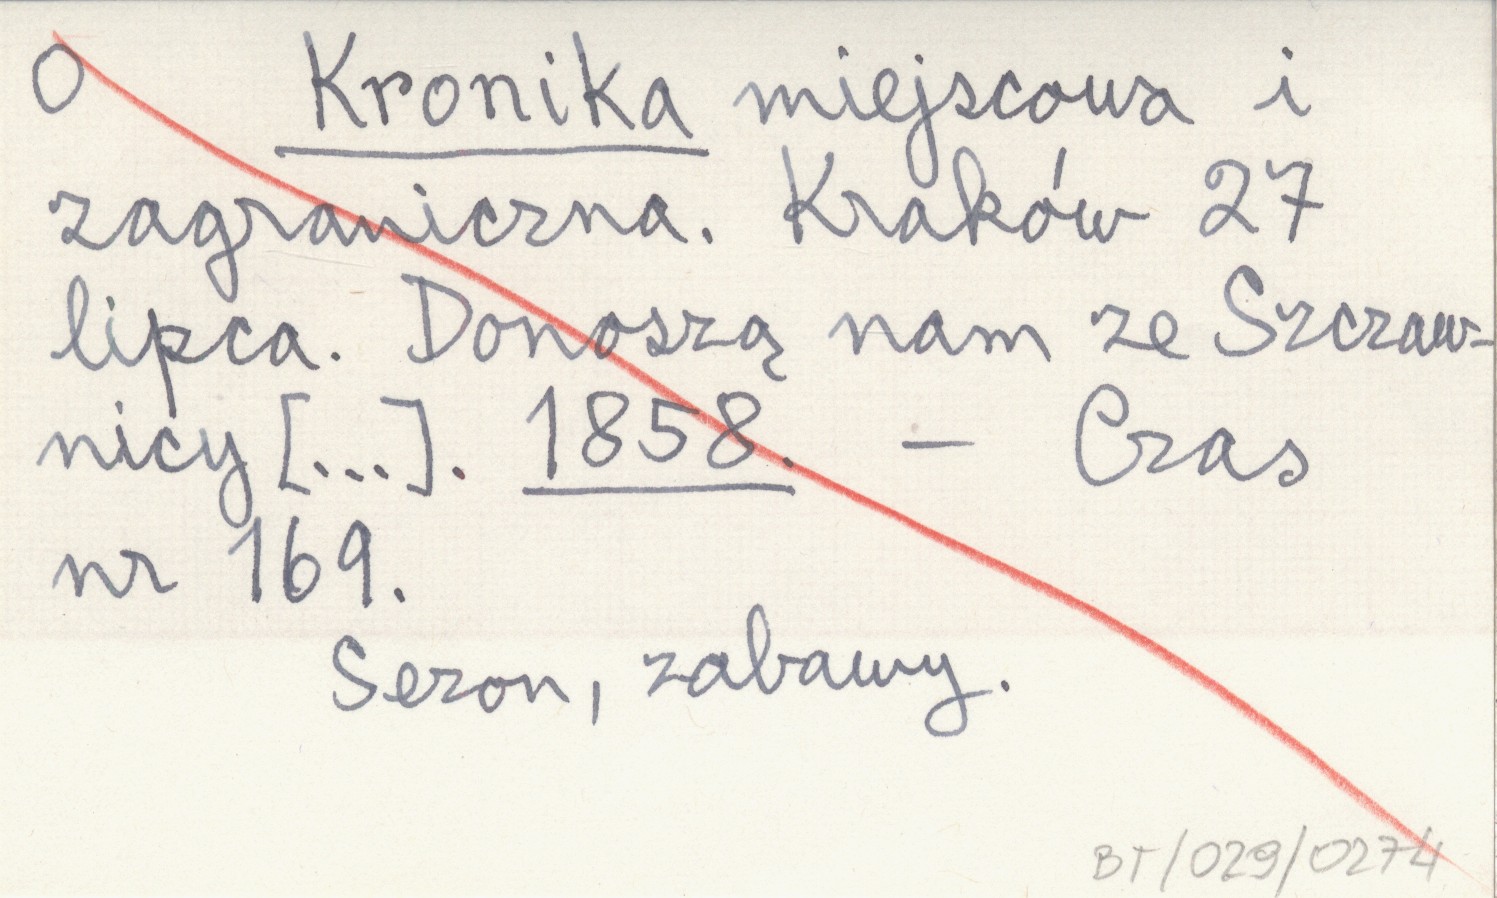 O Kronika miejscowa i
zagraniczna. Kraków 27
lipca. Donoszą nam ze Szczaw-
nicy [...]. 1858. — Czas
nr 169.
Sezon, zabawy.
BT/029/0274